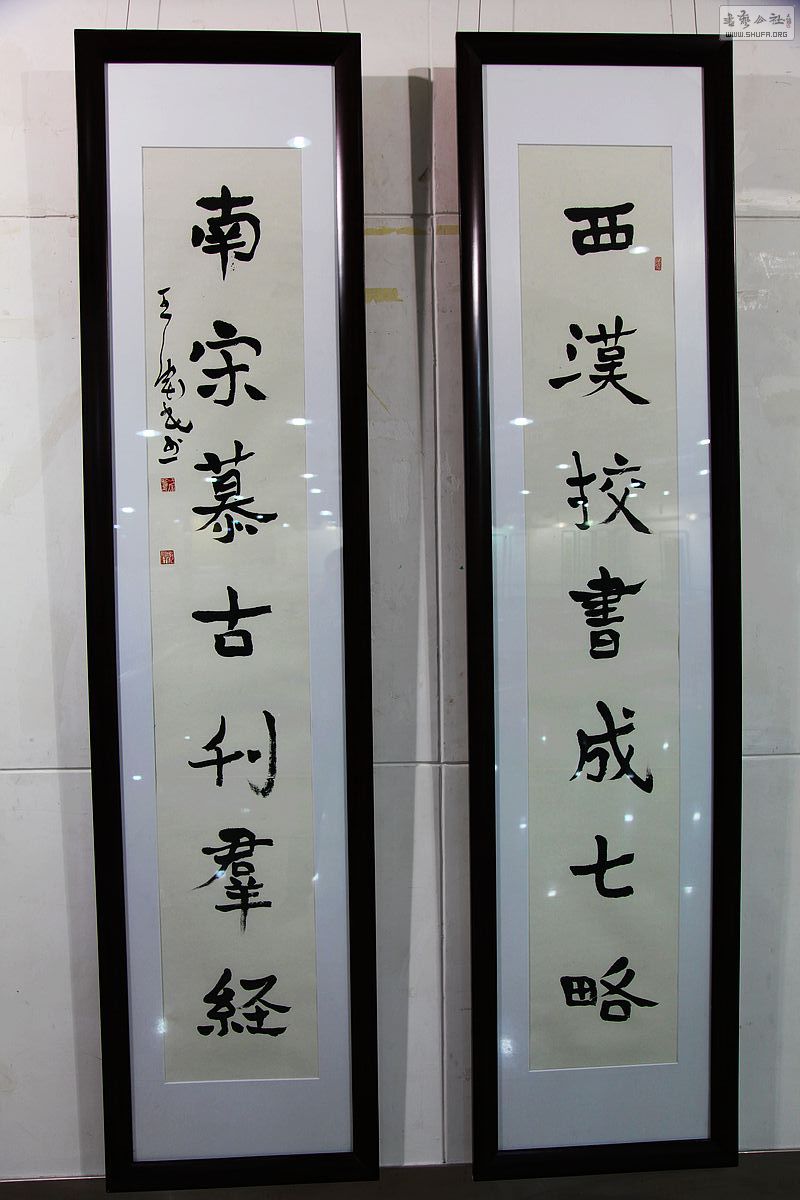 西漢挍書成七略
南宋慕古刊羣経
書藝公社
WWW.SHUFA.ORG